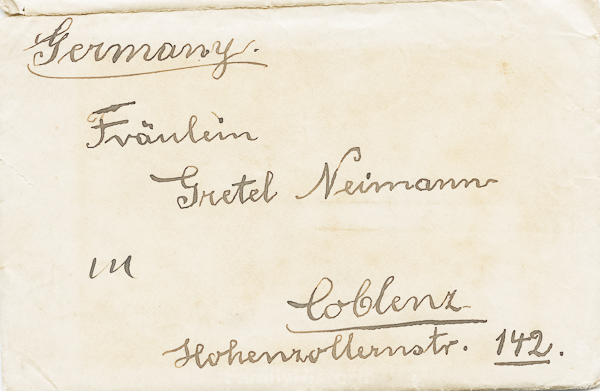 Germany.
Fräulein
Gretel Neimann
in
Coblenz
Hohenzollernstr. 142.